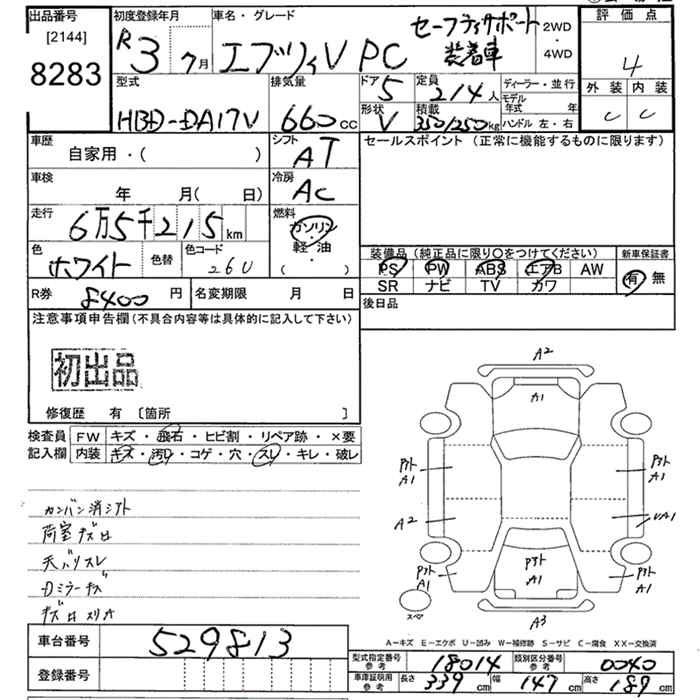 出品番号 [2144] 8283
初度登録年月 R3 7月
車名・グレード エブリィV PC セーフティサポート装着車
2WD・4WD
評価点 4
外装 C 内装 C
型式 HBD-DA17V
排気量 660cc
ドア 5 形状 V
定員 2/4人 積載 350/250kg
ディーラー・並行
モデル年式 年
ハンドル 左・右
車歴 自家用・( )
シフト AT
セールスポイント (正常に機能するものに限ります)
車検 年 月(日)
冷房 AC
走行 6万5千215km
燃料 ガソリン・軽油・( )
色 ホワイト 色替 色コード 26U
装備品 (純正品に限り〇をつけてください)
新車保証書 有 無
PS PW ABS エアB AW
SR ナビ TV カワ
R券 8400円 名変期限 月 日
後日品
注意事項申告欄 (不具合内容等は具体的に記入して下さい)
初出品
修復歴 有 [箇所 ]
検査員記入欄
FW キズ・飛石・ヒビ割・リペア跡・×要
内装 キズ・汚れ・コゲ・穴・スレ・キレ・破レ
カンバン消シアト
荷室キズ凹
天バリスレ
Dミラーキズ
A2
A1
A1
A1
A2
UA1
A1
A1
A1
スペア
A3
A-キズ E-エクボ U-凹み W-補修跡 S-サビ C-腐食 XX-交換済
車台番号 529813
登録番号
型式指定番号参考 18014 類別区分番号参考 0040
車庫証明用参考 長さ 339cm 幅 147cm 高さ 189cm